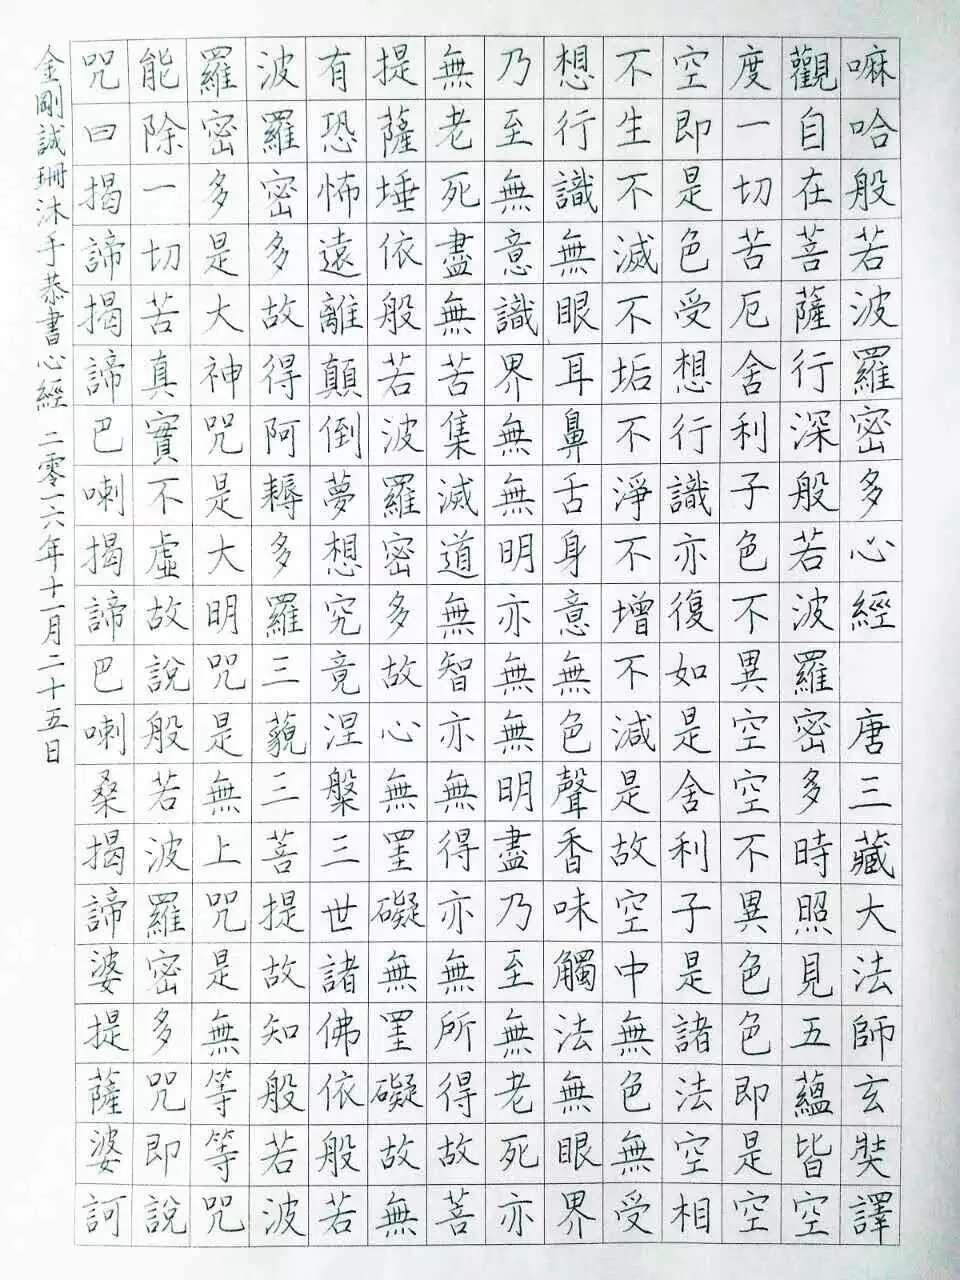 嘛哈般若波羅密多心經 唐三藏大法師玄奘譯
觀自在菩薩行深般若波羅密多時照見五蘊皆空
度一切苦厄舍利子色不異空空不異色色即是空
空即是色受想行識亦復如是舍利子是諸法空相
不生不滅不垢不淨不增不減是故空中無色無受
想行識無眼耳鼻舌身意無色聲香味觸法無眼界
乃至無意識界無無明亦無無明盡乃至無老死亦
無老死盡無苦集滅道無智亦無得亦無所得故菩
提薩埵依般若波羅密多故心無罣礙無罣礙故無
有恐怖遠離顛倒夢想究竟涅槃三世諸佛依般若
波羅密多故得阿耨多羅三藐三菩提故知般若波
羅密多是大神咒是大明咒是無上咒是無等等咒
能除一切苦真實不虛故說般若波羅密多咒即說
咒曰揭諦揭諦巴喇揭諦巴喇桑揭諦婆提薩婆訶
金剛誠珊沐手恭書心經 二零一六年十一月二十五日